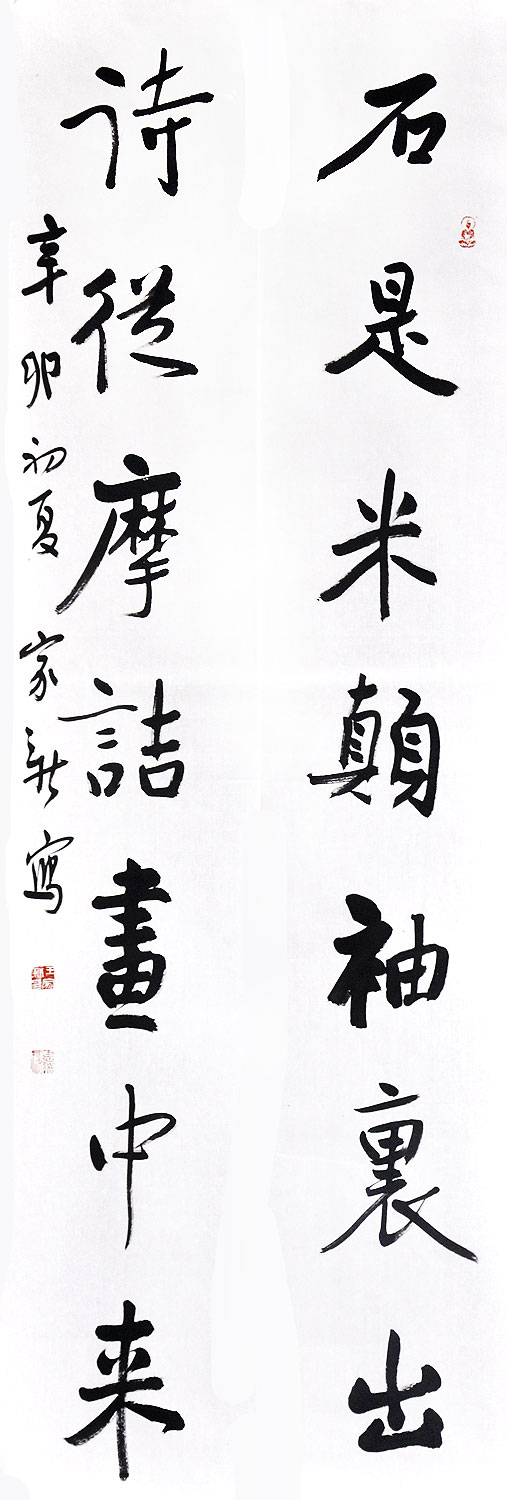 石是米顛袖裏出
诗從摩詰畫中来
辛卯初夏家新寫